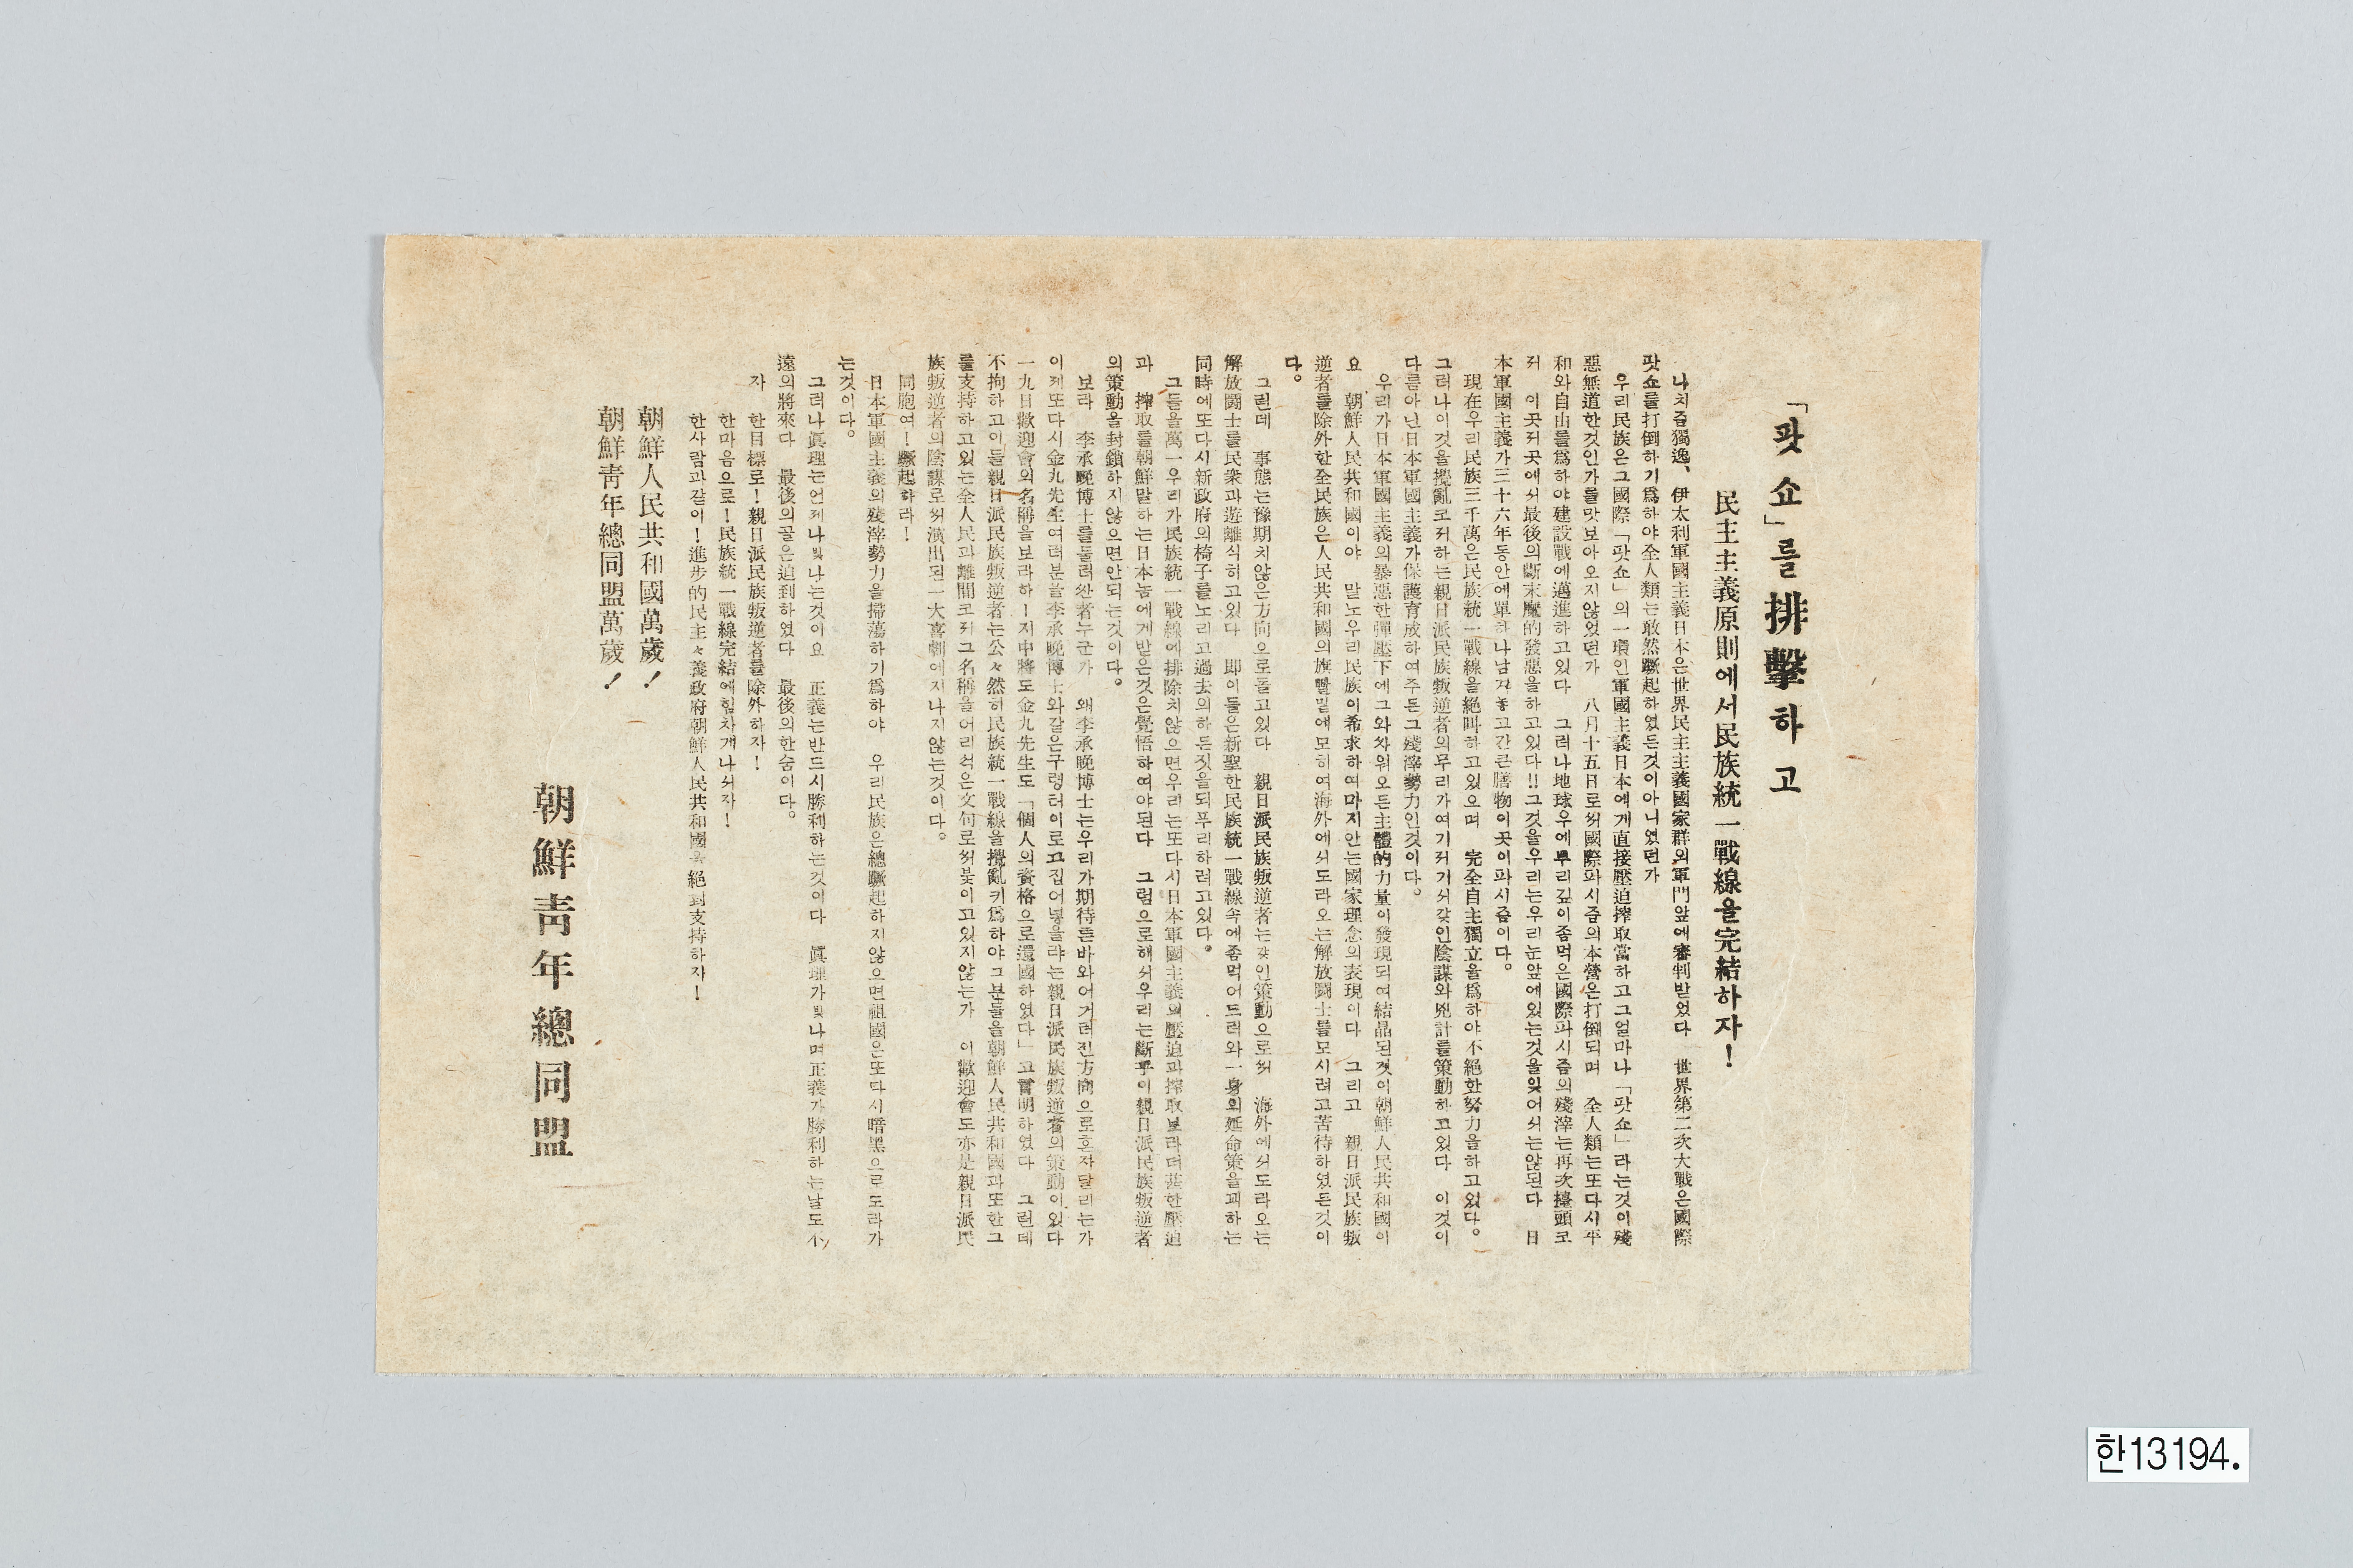 「팟쇼」를排擊하고
民主主義原則에서民族統一戰線을完結하자!
나치즘獨逸、伊太利軍國主義日本은世界民主主義國家群의軍門앞에審判받었다 世界第二次大戰은國際
팟쇼를打倒하기爲하야全人類는敢然蹶起하였든것이아니였던가
우리民族은그國際「팟쇼」의一環인軍國主義日本에게直接壓迫搾取當하고그얼마나「팟쇼」라는것이殘
惡無道한것인가를맛보아오지않었던가 八月十五日로써國際파시즘의本營은打倒되며 全人類는또다시平
和와自由를爲하야建設戰에邁進하고있다 그러나地球우에뿌리깊이좀먹은國際파시즘의殘滓는再次擡頭코
저 이곳저곳에서最後의斷末魔的發惡을하고있다!!그것을우리는우리눈앞에있는것을잊어서는않된다 日
本軍國主義가三十六年동안에單하나남겨놓고간膳物이곳이파시즘이다。
現在우리民族三千萬은民族統一戰線을絕叫하고있으며 完全自主獨立을爲하야不絕한努力을하고있다。
그러나이것을攪亂코저하는親日派民族叛逆者의무리가여기저기서갖인陰謀와兇計를策動하고있다 이것이
다름아닌日本軍國主義가保護育成하여주든그殘滓勢力인것이다。
우리가日本軍國主義의暴惡한彈壓下에그와싸워오든主體的力量이發現되여結晶된것이朝鮮人民共和國이
요 朝鮮人民共和國이야 말노우리民族이希求하여마지안는國家理念의表現이다 그리고 親日派民族叛
逆者를除外한全民族은人民共和國의旗빨밑에모히여海外에서도라오는解放鬪士를모시려고苦待하였든것이
다。
그런데 事態는豫期치않은方向으로돌고있다 親日派民族叛逆者는갖인策動으로써 海外에서도라오는
解放鬪士를民衆과遊離식히고있다 即이들은新聖한民族統一戰線속에좀먹어드려와一身의延命策을꾀하는
同時에또다시新政府의椅子를노리고過去의하든짓을되푸리하려고있다。
그들을萬一우리가民族統一戰線에排除치않으면우리는또다시日本軍國主義의壓迫과搾取보라더甚한壓迫
과 搾取를朝鮮말하는日本놈에게받은것은覺悟하여야된다 그럼으로해서우리는斷乎이親日派民族叛逆者
의策動을封鎖하지않으면안되는것이다。
보라 李承晩博士를둘러싼者누군가 왜李承晩博士는우리가期待튼바와어거려진方向으로흐자달리는가
이제또다시金九先生여러분을李承晩博士와같은구렁터이로고집어넣을랴는親日派民族叛逆者의策動이있다
一九日歡迎會의名稱을보라하ー지中將도金九先生도「個人의資格으로還國하였다」고言明하였다 그런데
不拘하고이들親日派民族叛逆者는公々然히民族統一戰線을攪亂키爲하야그분들을朝鮮人民共和國과또한그
를支持하고있는全人民과離間코저그名稱을어리석은文句로써붗이고있지않는가 이歡迎會도亦是親日派民
族叛逆者의陰謀로써演出된一大喜劇에지나지않는것이다。
同胞여!蹶起하라!
日本軍國主義의殘滓勢力을掃蕩하기爲하야 우리民族은總蹶起하지않으면祖國은또다시暗黑으로도라가
는것이다。
그러나眞理는언제나빛나는것이요 正義는반드시勝利하는것이다 眞理가빛나며正義가勝利하는날도不
遠의將來다 最後의골은迫到하였다 最後의한숨이다。
자 한目標로!親日派民族叛逆者를除外하자!
한마음으로!民族統一戰線完結에힘차게나서자!
한사람과같이!進步的民主々義政府朝鮮人民共和國을絕對支持하자!
朝鮮人民共和國萬歲!
朝鮮靑年總同盟萬歲!
朝鮮靑年總同盟
한13194.